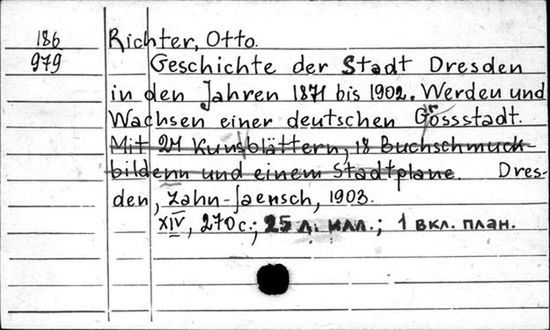 186
979
Richter, Otto.
Geschichte der Stadt Dresden
in den Jahren 1871 bis 1902. Werden und
Wachsen einer deutschen Grossstadt.
Mit 24 Kunstblättern, 18 Buchschmuck-
bildenn und einem Stadtplane. Dres-
den, Zahn-Jaensch, 1903.
XIV, 270 с.; 25 л. илл.; 1 вкл. план.